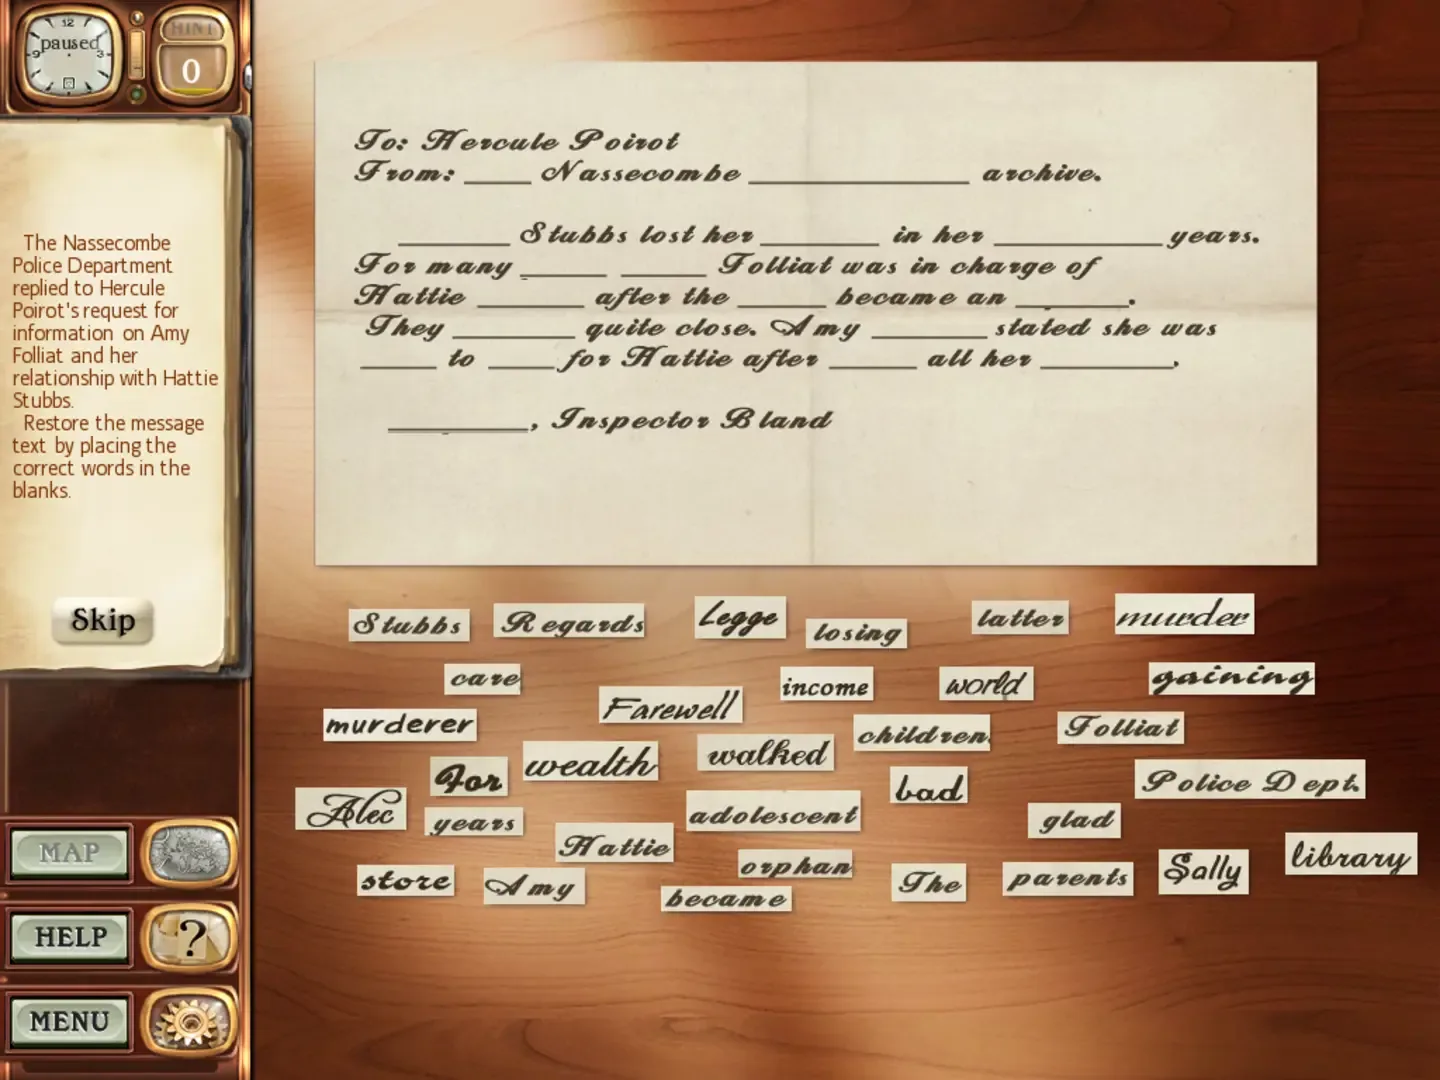 12
paused
9
3
HINT
0
The Nassecombe
Police Department
replied to Hercule
Poirot's request for
information on Amy
Folliat and her
relationship with Hattie
Stubbs.
Restore the message
text by placing the
correct words in the
blanks.
Skip
MAP
HELP
?
MENU
To: Hercule Poirot
From: ____ Nassecombe ____ archive.
____ Stubbs lost her ____ in her ____ years.
For many ____ ____ Folliat was in charge of
Hattie ____ after the ____ became an ____.
They ____ quite close. Amy ____ stated she was
____ to ____ for Hattie after ____ all her ____.
____, Inspector Bland
Stubbs Regards Legge losing latter murder
care income world gaining
murderer Farewell children Folliat
For wealth walked bad Police Dept.
Alec years adolescent glad
Hattie orphan library
store Amy became The parents Sally